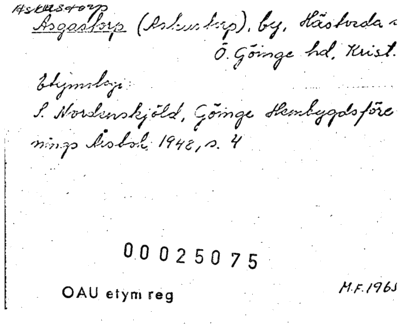 Askustorp
Asgastorp (Askustorp), by, Hästveda
Ö. Göinge hd, Krist.
Etymologi:
S. Nordenskjöld, Göinge Hembygdsföre
nings Årsbok 1948, s. 4
00025075
OAU etym reg
M.F. 1965